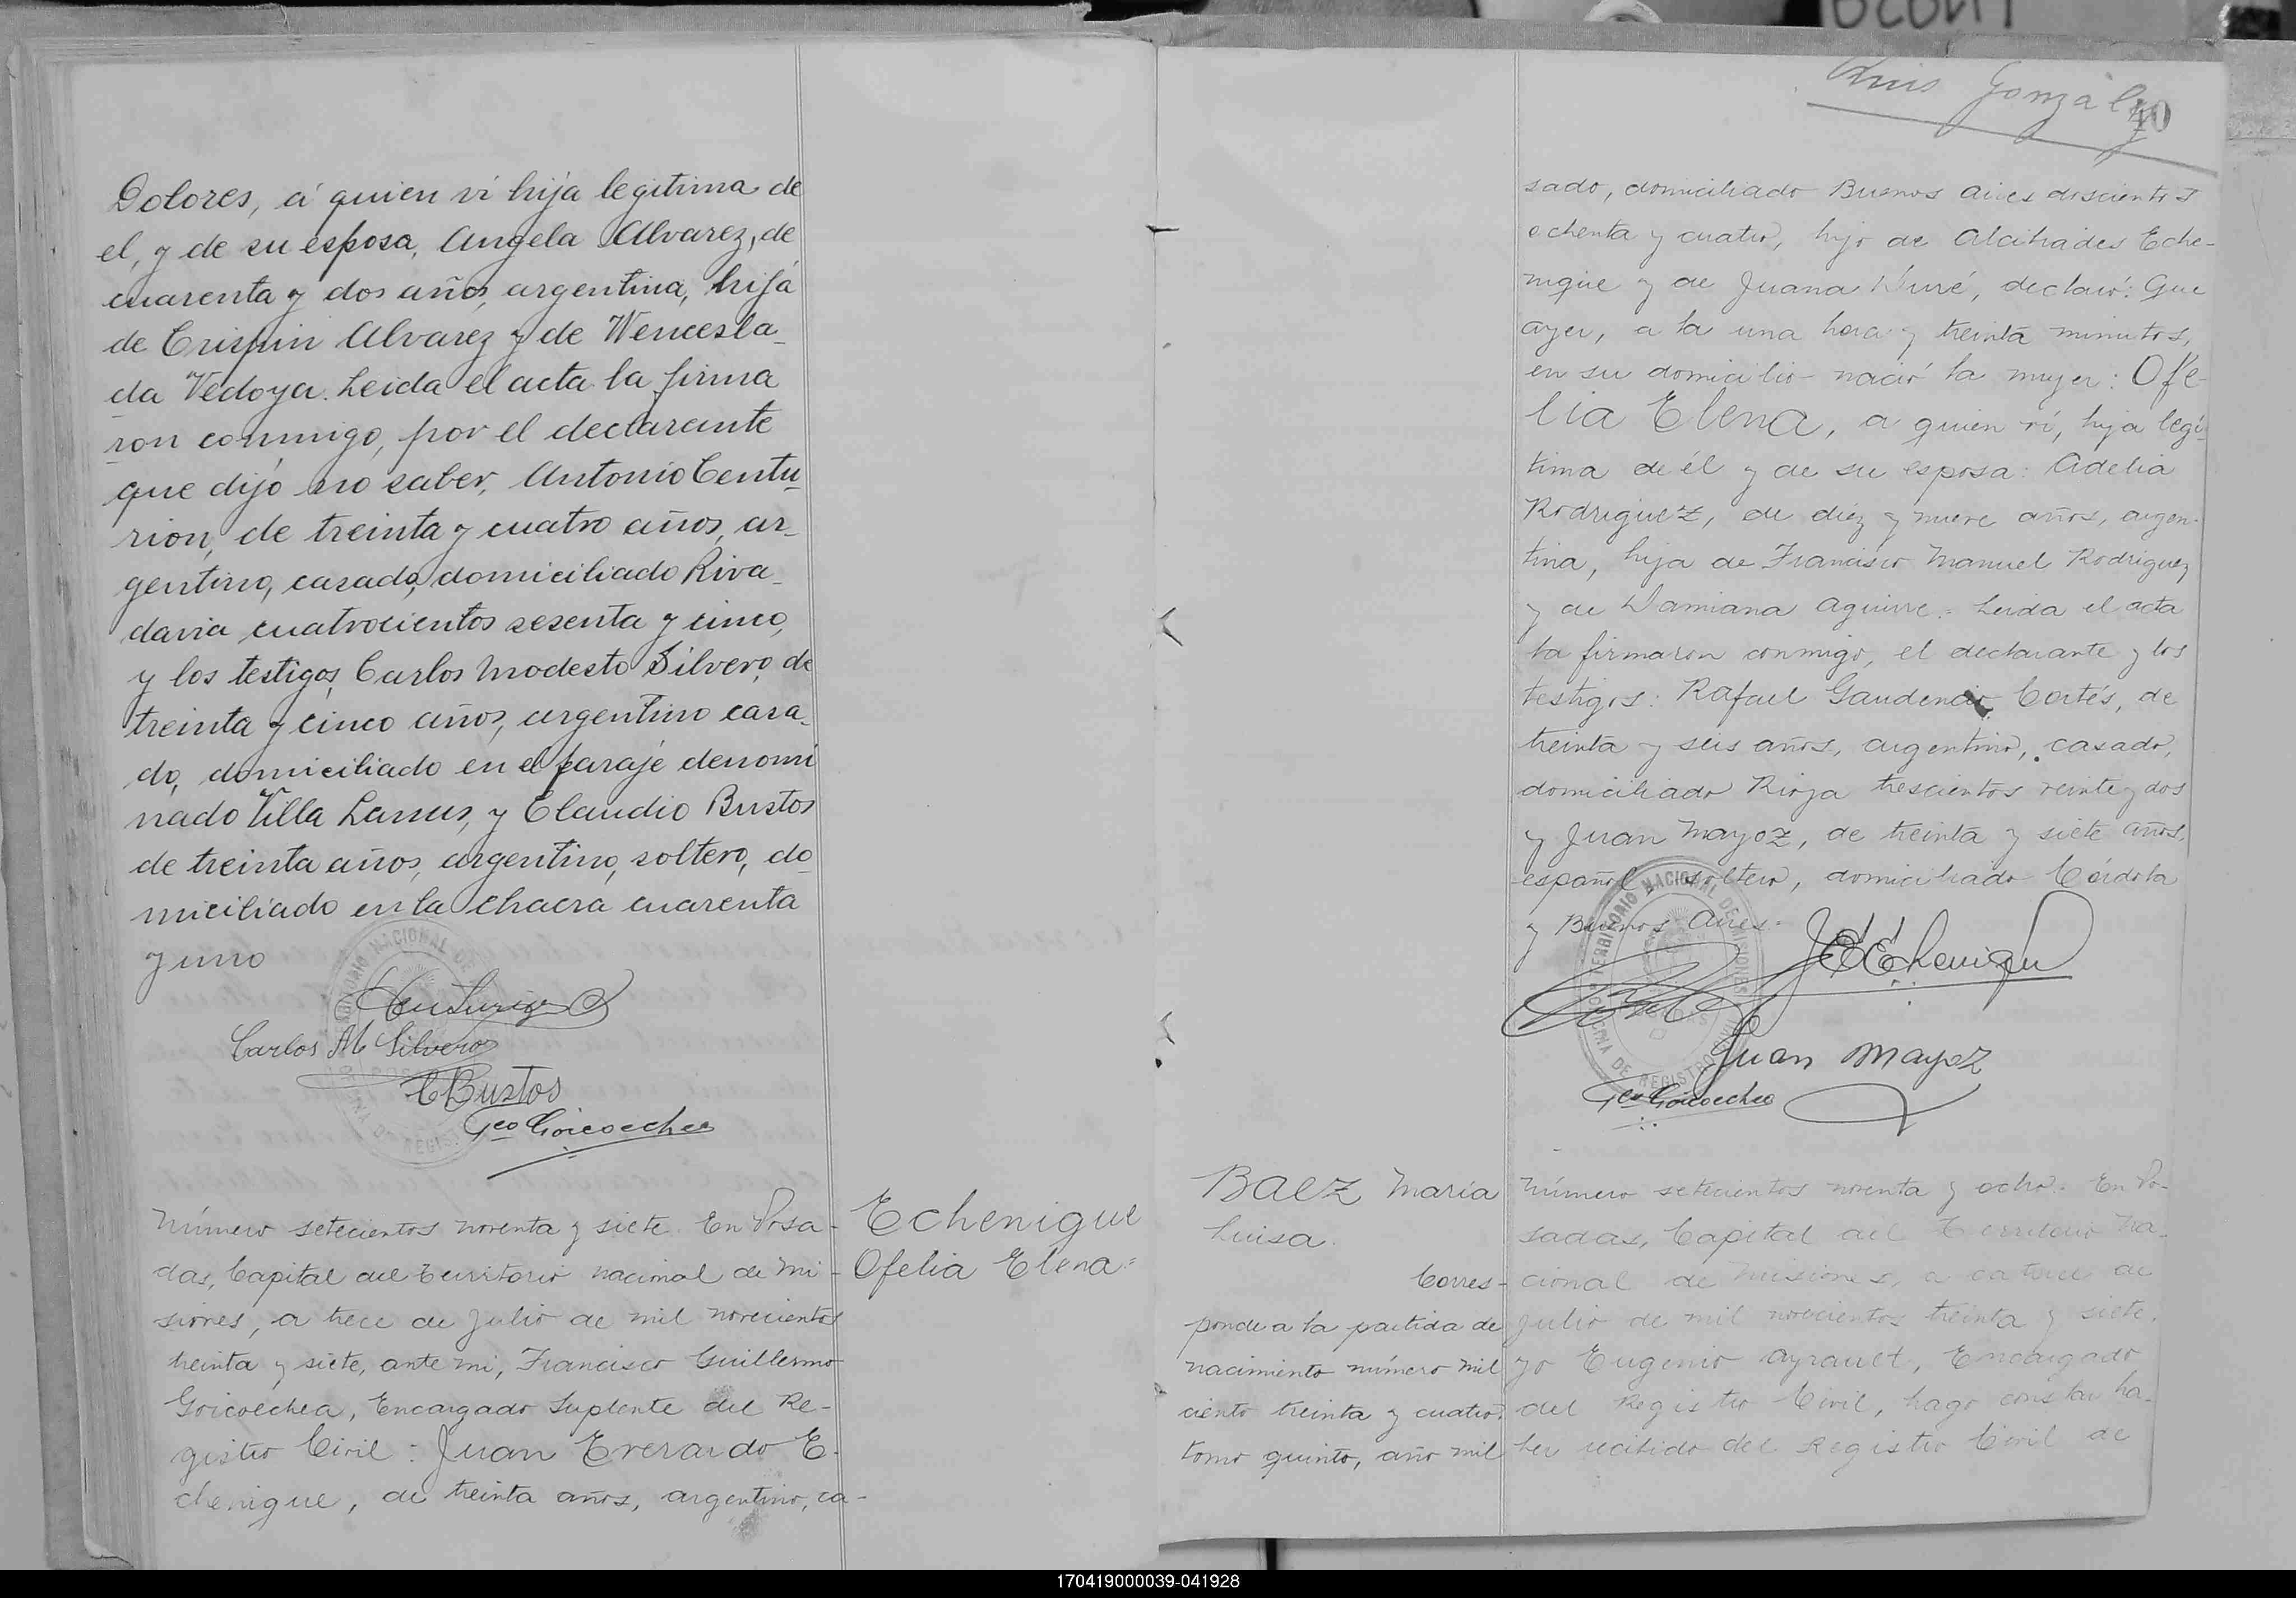 Dolores, á quien ví hija legitima de
el, y de su esposa, Angela Alvarez, de
cuarenta y dos años, argentina, hija
de Crispin Alvarez y de Wencesla-
da Vedoya. Leida el acta la firma
ron conmigo, por el declarante
que dijo no saber, Antonio Centu-
rion, de treinta y cuatro años, ar-
gentino, casado, domiciliado Riva-
davia cuatrocientos sesenta y cinco,
y los testigos, Carlos Modesto Silvero, de
treinta y cinco años, argentino casa-
do, domiciliado en el paraje denomi
nado Villa Lanus, y Claudio Bustos
de treinta años, argentino, soltero, do-
miciliado en la chacra cuarenta
y uno
Carlos M Silvero
C Bustos
Fco Goicoechea
Número setecientos noventa y siete. En Posa-
das, Capital del Territorio nacional de Mi-
siones, a trece de Julio de mil novecientos
treinta y siete, ante mi, Francisco Guillermo
Goicoechea, Encargado Suplente del Re-
gistro Civil: Juan Everardo E-
chenique, de treinta años, argentino, ca-
Echenique
Ofelia Elena=
Luis González
40
sado, domiciliado Buenos Aires doscientos
ochenta y cuatro, hijo de Alcibiades Eche-
nique y de Juana Duré, declaró: Que
ayer, a la una hora y treinta minutos,
en su domicilio nació la mujer: Ofe-
lia Elena, a quien ví, hija legí-
tima de él y de su esposa: Adelia
Rodriguez, de diez y nueve años, argen-
tina, hija de Francisco Manuel Rodriguez
y de Damiana Aguirre.= Leida el acta
la firmaron conmigo, el declarante y los
testigos: Rafael Gaudencio Cortés, de
treinta y seis años, argentino, casado,
domiciliado Rioja trescientos veinte y dos
y Juan Mayoz, de treinta y siete años,
español, soltero, domiciliado Córdoba
y Buenos Aires.=
J E Echenique
Juan Mayoz
Fco Goicoechea
TERRITORIO NACIONAL DE MISIONES
OFICINA DE REGISTRO
BAEZ María
Luisa.
Corres-
ponde a la partida de
nacimiento número mil
ciento treinta y cuatro,
tomo quinto, año mil
Número setecientos noventa y ocho.= En Po-
sadas, Capital del Territorio Na-
cional de Misiones, a catorce de
Julio de mil novecientos treinta y siete,
yo Eugenio Ayrault, Encargado
del Registro Civil, hago constar ha-
ber recibido del Registro Civil de
170419000039-041928